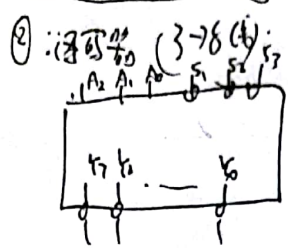 ② 译码器 (3→8位):
A₂ A₁ A₀ S₁ S₂ S₃
Y₇ Y₆ . — Y₀